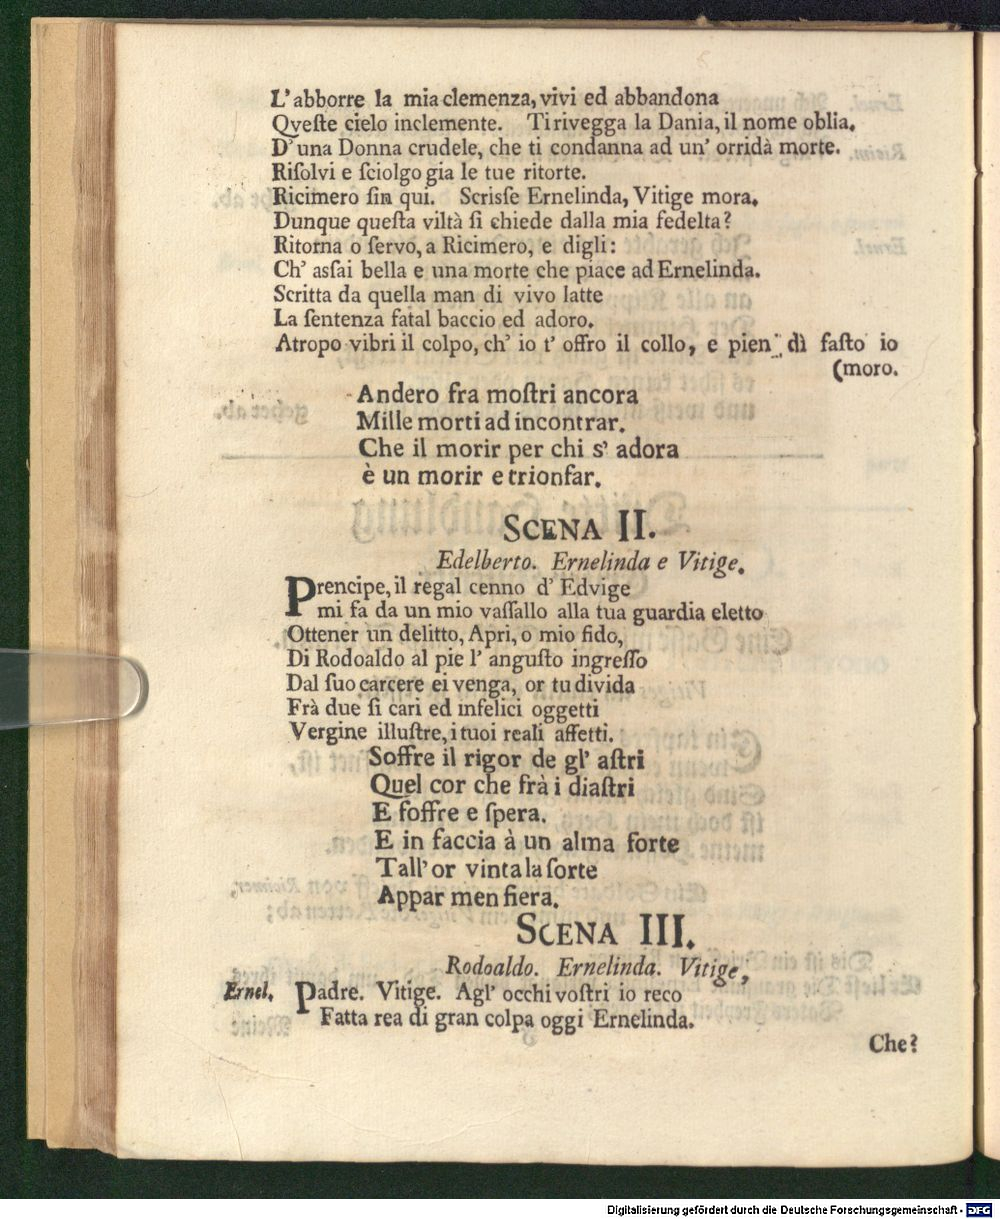 L'abborre la mia clemenza, vivi ed abbandona
Qveſte cielo inclemente. Ti rivegga la Dania, il nome oblia.
D'una Donna crudele, che ti condanna ad un' orridà morte.
Riſolvi e ſciolgo gia le tue ritorte.
Ricimero ſin qui. Scriſse Ernelinda, Vitige mora.
Dunque queſta viltà ſi chiede dalla mia fedelta?
Ritorna o ſervo, a Ricimero, e digli:
Ch' aſsai bella e una morte che piace ad Ernelinda.
Scritta da quella man di vivo latte
La ſentenza fatal baccio ed adoro.
Atropo vibri il colpo, ch' io t' offro il collo, e pien dì faſto io
(moro.
Andero fra moſtri ancora
Mille morti ad incontrar.
Che il morir per chi s' adora
è un morir e trionfar.
SCENA II.
Edelberto. Ernelinda e Vitige.
Prencipe, il regal cenno d' Edvige
mi fa da un mio vaſſallo alla tua guardia eletto
Ottener un delitto, Apri, o mio fido,
Di Rodoaldo al pie l' anguſto ingreſſo
Dal ſuo carcere ei venga, or tu divida
Frà due ſi cari ed infelici oggetti
Vergine illuſtre, i tuoi reali affetti.
Soffre il rigor de gl' aſtri
Quel cor che frà i diaſtri
E foffre e ſpera.
E in faccia à un alma forte
Tall' or vinta la ſorte
Appar men fiera.
SCENA III.
Rodoaldo. Ernelinda. Vitige,
Ernel. Padre. Vitige. Agl' occhi voſtri io reco
Fatta rea di gran colpa oggi Ernelinda.
Che?
Digitalisierung gefördert durch die Deutsche Forschungsgemeinschaft - DFG